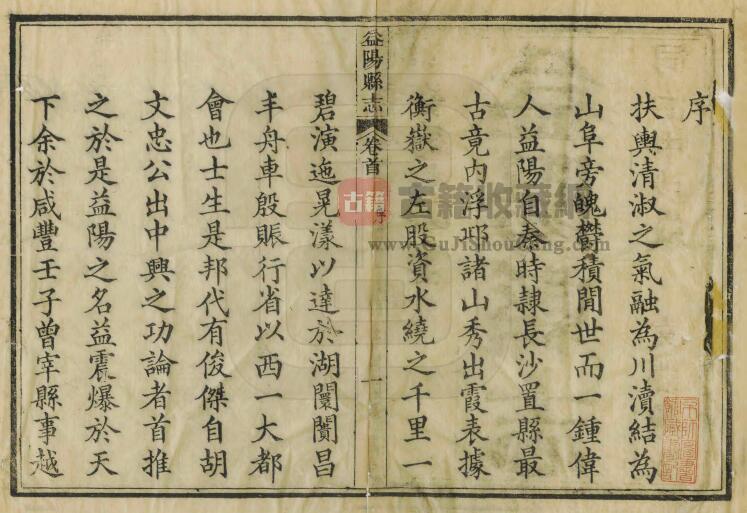 序
扶輿清淑之氣融為川瀆結為
山阜旁魄欝積閒世而一鍾偉
人益陽自秦時隷長沙置縣最
古竟内浮邱諸山秀出霞表據
衡嶽之左股資水繞之千里一
益陽縣志
卷首
序
一
碧演迤晃漾以達於湖闤闠昌
丰舟車殷賑行省以西一大都
會也士生是邦代有俊傑自胡
文忠公出中興之功論者首推
之於是益陽之名益震爆於天
下余於咸豐壬子曾宰縣事越
古籍
古籍收藏網
www.GuJiShouCang.com